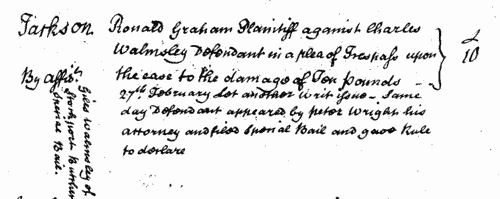 Jackson. Ronald Graham Plaintiff against Charles
Walmsley Defendant in a plea of Trespass upon
the case to the damage of Ten pounds
£
10
27th February let another writ issue - Same
day Defendant appeared by Peter Wright his
attorney and filed Special Bail and gave Rule
to declare
By affit.
Giles Walmsley of
Stockport
Special Bail.